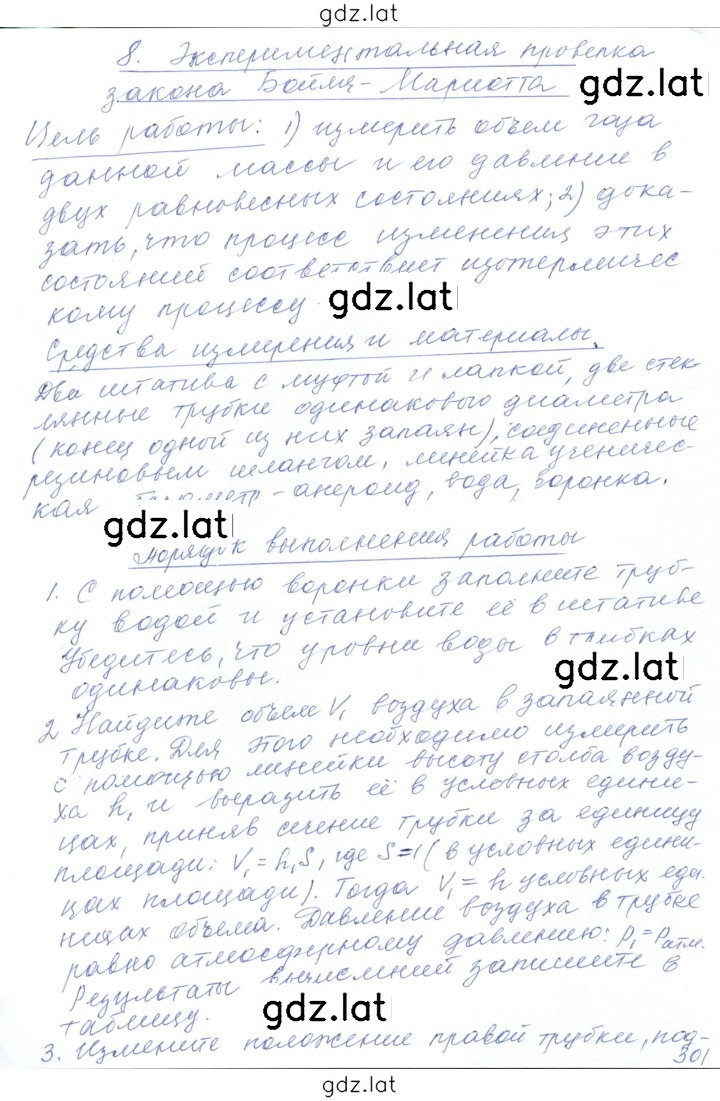 gdz.lat
8. Экспериментальная проверка
закона Бойля-Мариотта gdz.lat
Цель работы: 1) измерить объем газа
данной массы и его давление в
двух равновесных состояниях; 2) дока-
зать, что процесс изменения этих
состояний соответствует изотермичес
кому процессу gdz.lat
Средства измерения и материалы.
Два штатива с муфтой и лапкой, две стек-
лянные трубки одинакового диаметра
(конец одной из них запаян), соединенные
резиновым шлангом, линейка ученичес-
кая барометр-анероид, вода, воронка.
gdz.lat
Порядок выполнения работы
1. С помощью воронки заполните труб-
ку водой и установите её в штативе
Убедитесь, что уровни воды в трубках
одинаковы. gdz.lat
2 Найдите объем V₁ воздуха в запаянной
трубке. Для этого необходимо измерить
с помощью линейки высоту столба возду-
ха h₁ и выразить её в условных едини-
цах, приняв сечение трубки за единицу
площади: V₁=h₁S, где S=1 (в условных едини-
цах площади). Тогда V₁=h условных еди-
ницах объема. Давление воздуха в трубке
равно атмосферному давлению: p₁=pатм.
Результаты вычислений запишите в
таблицу. gdz.lat
3. Измените положение правой трубки, под-
301
gdz.lat